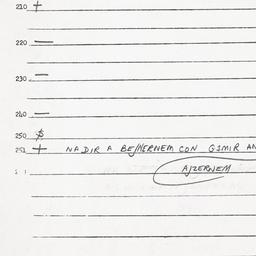 210 +
220 —
230 —
240 —
250 $
251 + NADIR A BEJHERNEM CON GSMIR AN
AJZERNEM